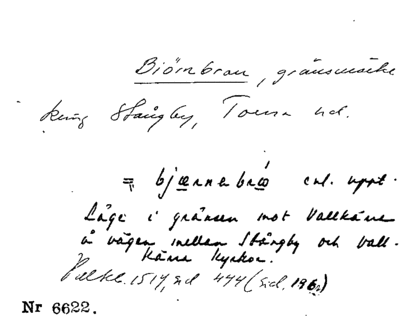 Biörnbron, gränsmärke
kring Stångby, Torna hd.
= bjœnnabrœ́ enl. uppt.
Läge i gränsen mot Vallkärra
å vägen mellan Stångby och Vall-
kärra kyrkor.
1514, sid 444 (sid. 196)
Nr 6622.